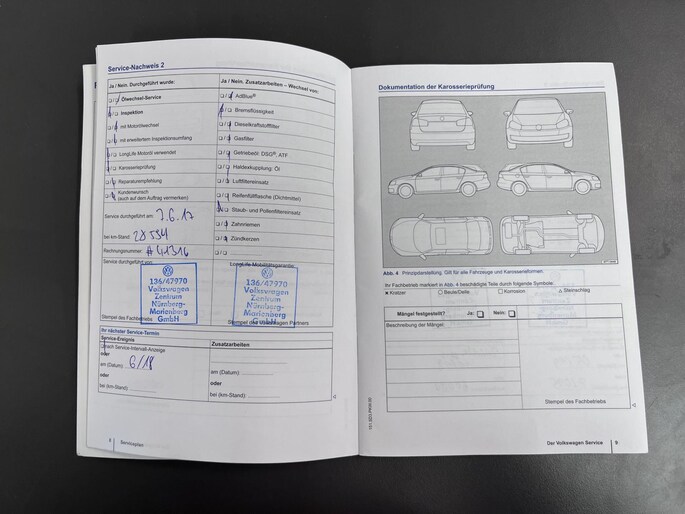 Service-Nachweis 2
Ja / Nein. Durchgeführt wurde:
Ölwechsel-Service
Inspektion
mit Motorölwechsel
mit erweitertem Inspektionsumfang
LongLife Motoröl verwendet
Karosserieprüfung
Reparaturempfehlung
Kundenwunsch
(auch auf dem Auftrag vermerken)
Service durchgeführt am: 7.6.17
bei km-Stand: 28534
Rechnungsnummer: #41316
Service durchgeführt von:
136/47970
Volkswagen
Zentrum
Nürnberg-
Marienberg
GmbH
Stempel des Fachbetriebs
Ja / Nein. Zusatzarbeiten – Wechsel von:
AdBlue®
Bremsflüssigkeit
Dieselkraftstofffilter
Gasfilter
Getriebeöl: DSG®, ATF
Haldexkupplung: Öl
Luftfiltereinsatz
Reifenfüllflasche (Dichtmittel)
Staub- und Pollenfiltereinsatz
Zahnriemen
Zündkerzen
LongLife Mobilitätsgarantie:
136/47970
Volkswagen
Zentrum
Nürnberg-
Marienberg
GmbH
Stempel des Volkswagen Partners
Ihr nächster Service-Termin
Service-Ereignis
nach Service-Intervall-Anzeige
oder
am (Datum): 6/18
oder
bei (km-Stand):
Zusatzarbeiten:
am (Datum):
oder
bei (km-Stand):
8 Serviceplan
Dokumentation der Karosserieprüfung
Abb. 4 Prinzipdarstellung. Gilt für alle Fahrzeuge und Karosserieformen.
Ihr Fachbetrieb markiert in Abb. 4 beschädigte Teile durch folgende Symbole:
Kratzer Beule/Delle Korrosion Steinschlag
Mängel festgestellt? Ja: Nein:
Beschreibung der Mängel:
Stempel des Fachbetriebs
Der Volkswagen Service 9